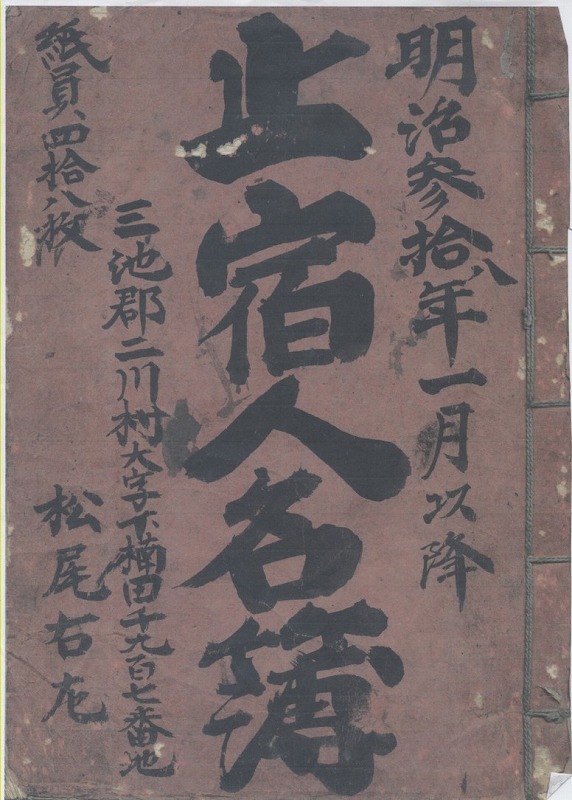 明治参拾八年一月以降
止宿人名簿
三池郡二川村大字下楠田千九百七番地
松尾右左
紙員、四拾八枚